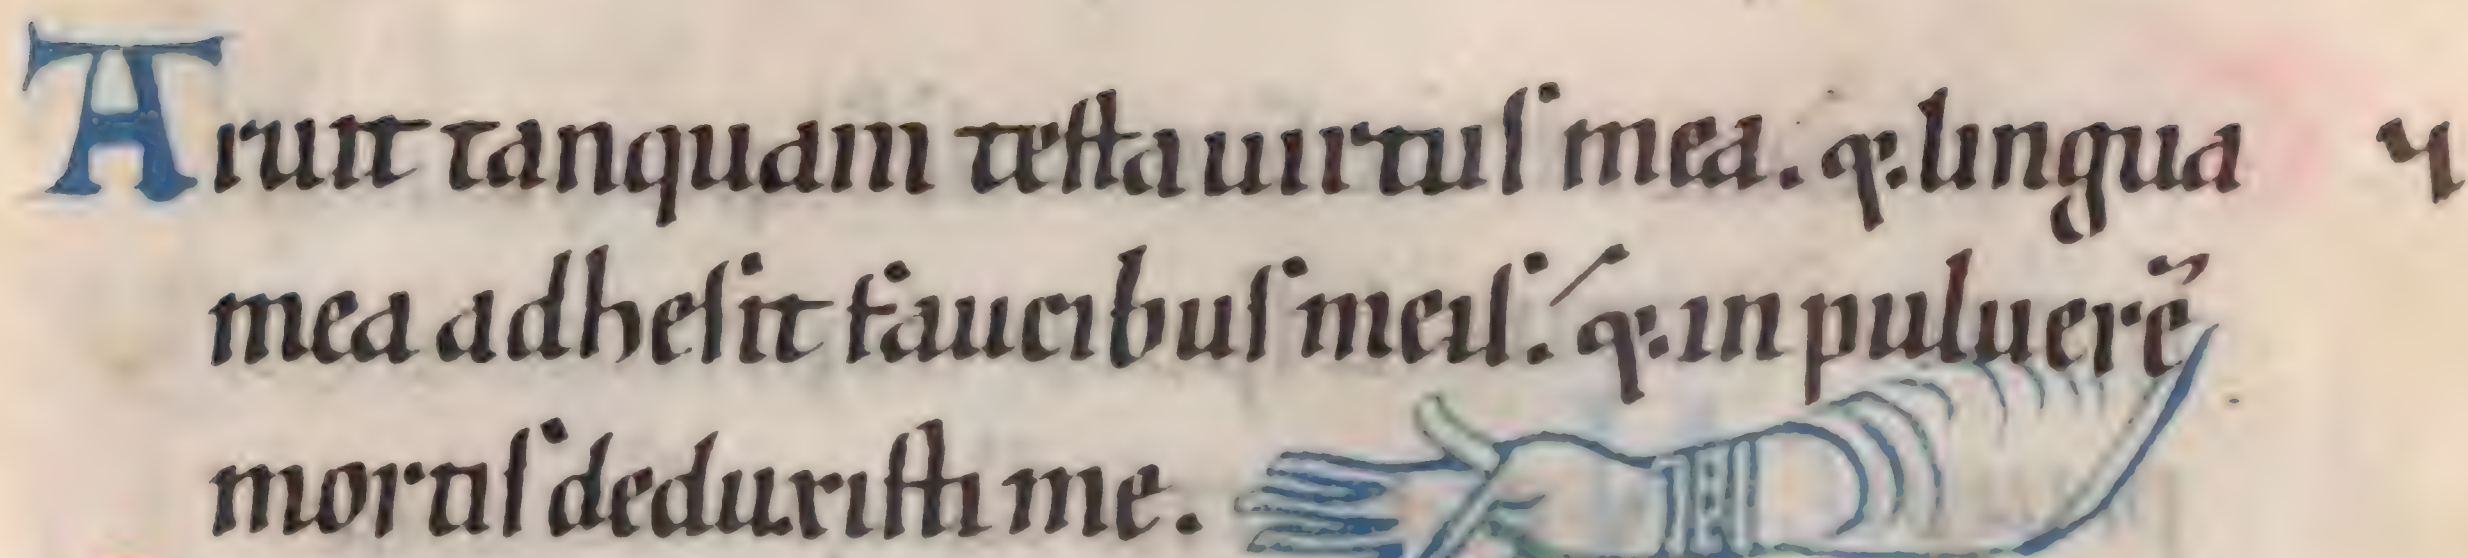 Aruit tanquam testa uirtus mea. q; lingua
mea adhesit faucibus meis: q; in puluerē
mortis deduxisti me.